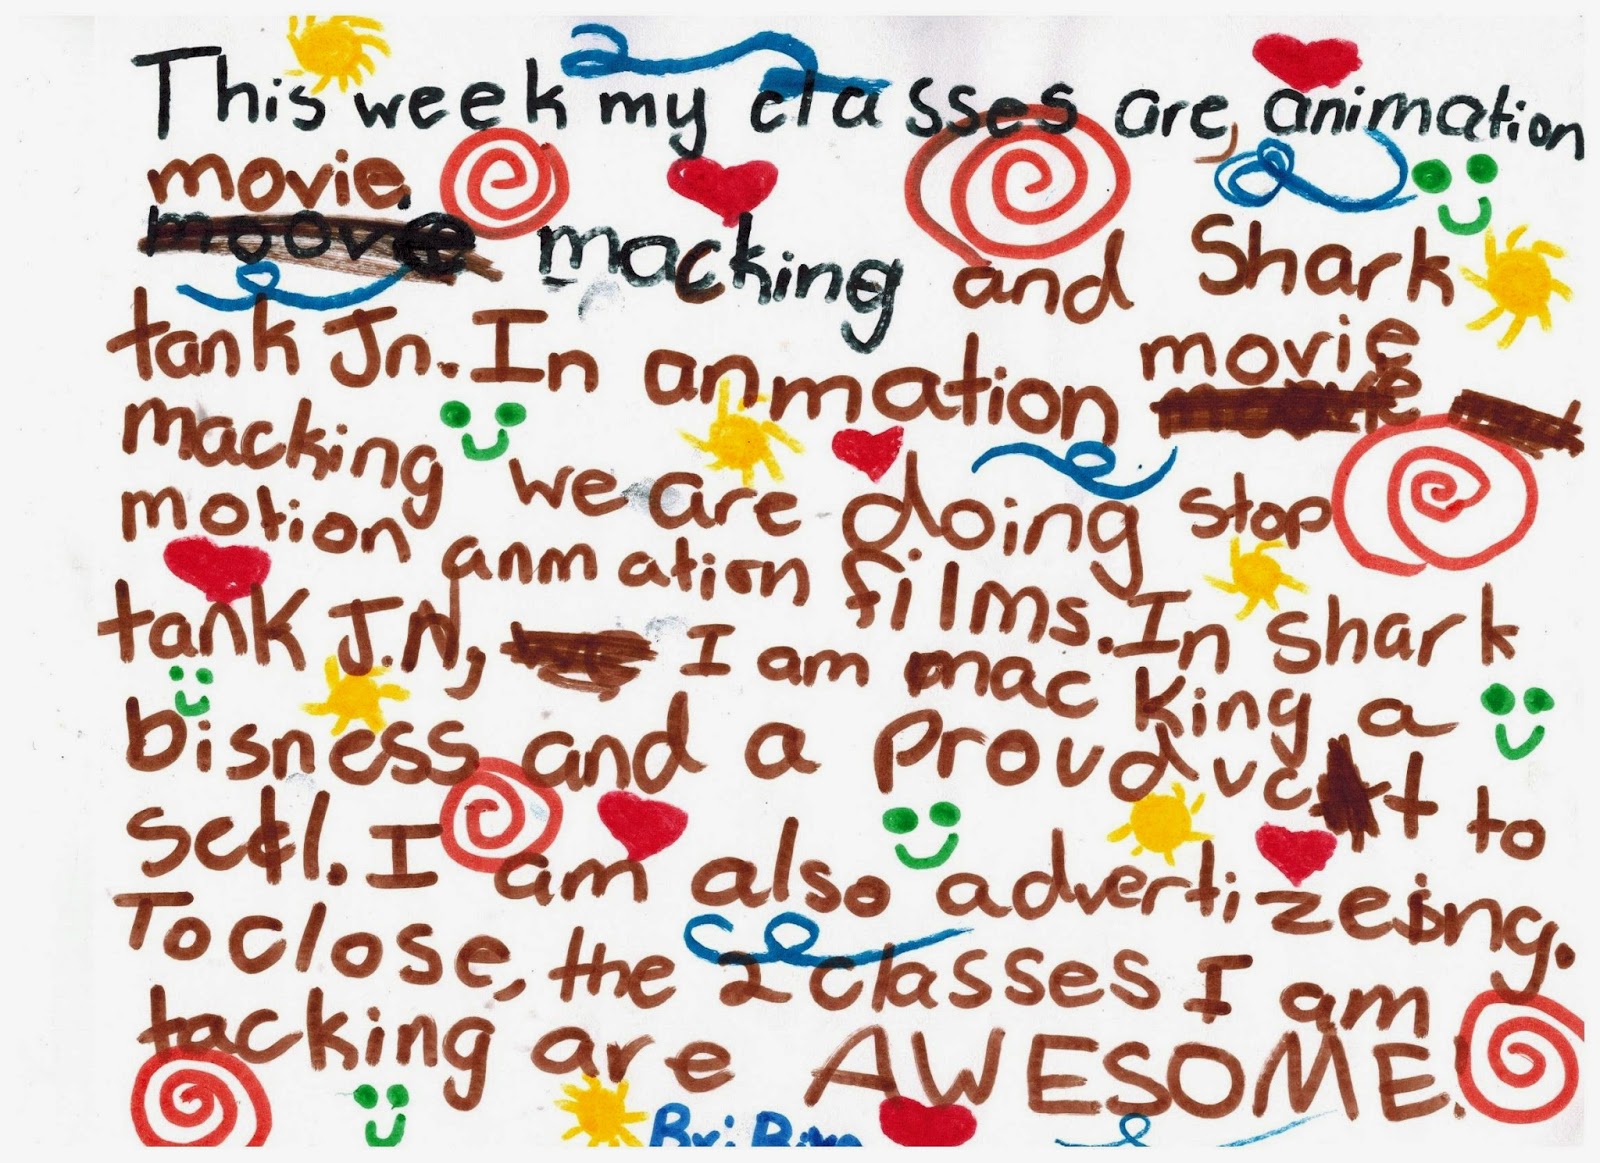 This week my classes are, animation
movie, macking and Shark
tank Jn. In anmation movie
macking we are doing stop
motion anmation films. In Shark
tank J.N, I am mac king a
bisness and a proudvct to
sell. I am also advertizeing.
To close, the 2 classes I am
tacking are AWESOME!